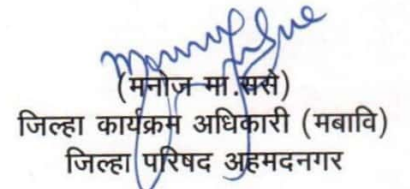 (मनोज मा.ससे)
जिल्हा कार्यक्रम अधिकारी (मबावि)
जिल्हा परिषद अहमदनगर